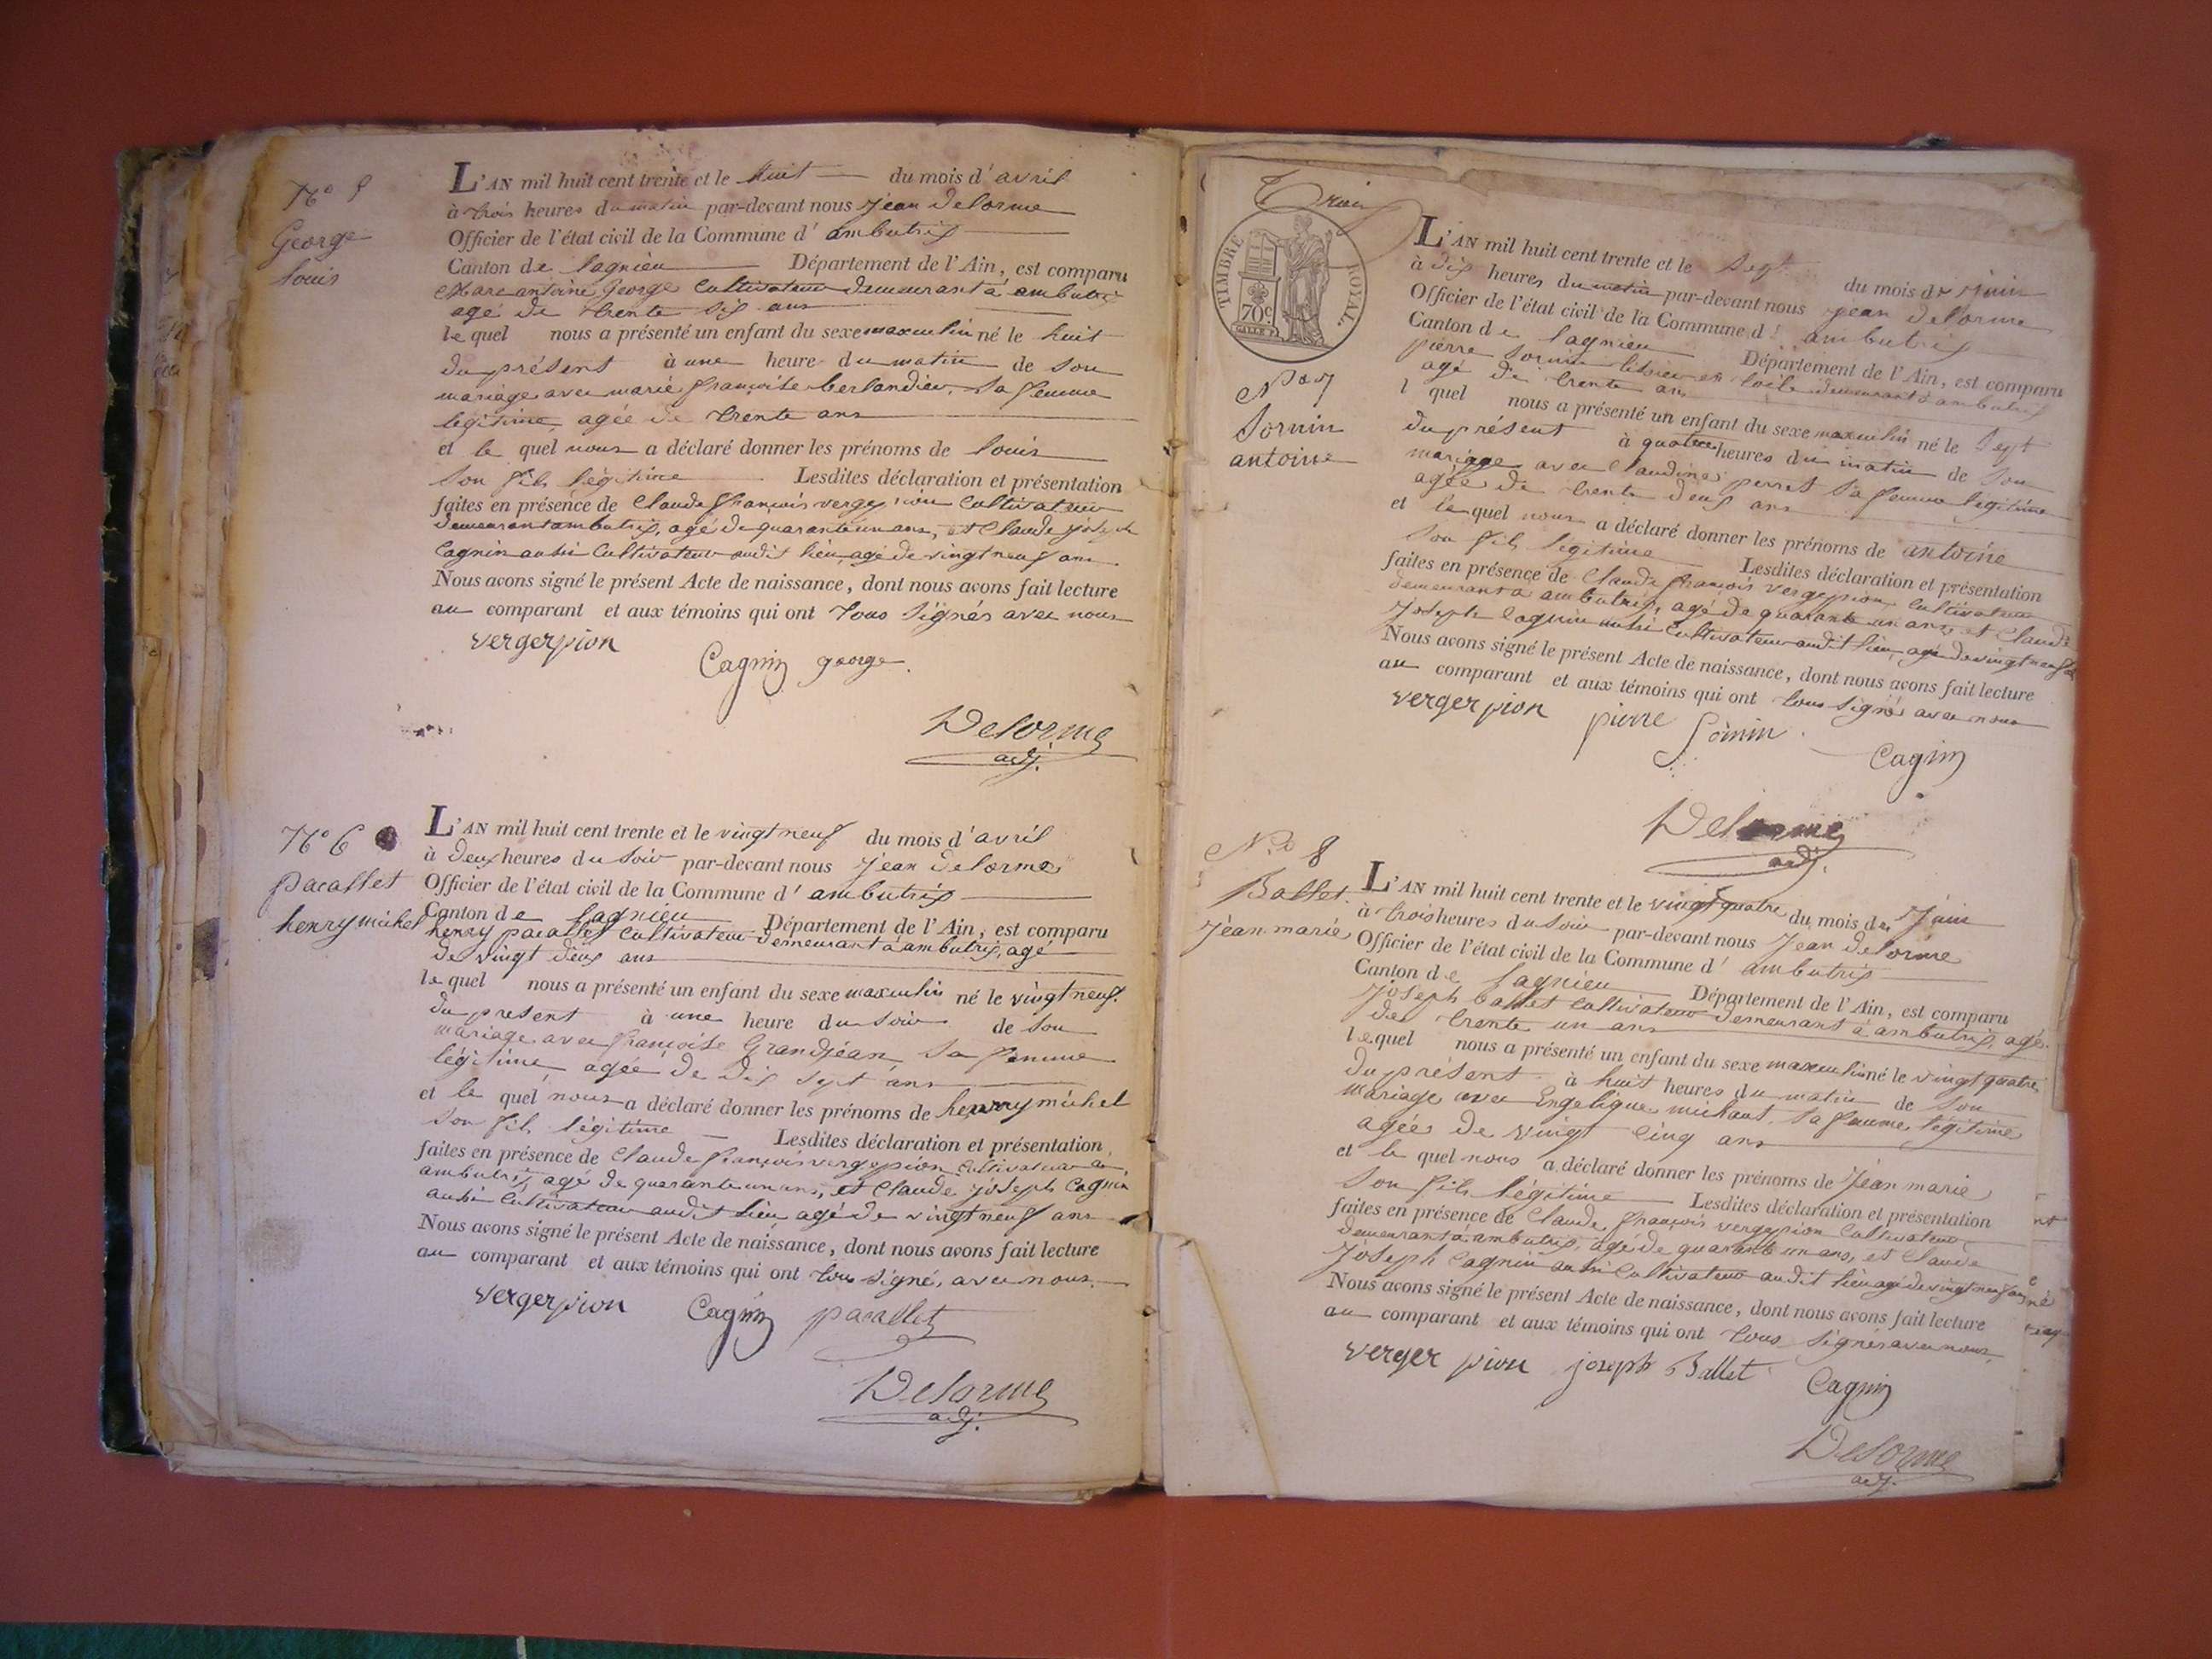 N° 5
George
louis
L'AN mil huit cent trente et le huit du mois d'avril
à trois heures du matin par-devant nous jean delorme
Officier de l'état civil de la Commune d'ambutrix
Canton de lagnieu Département de l'Ain, est comparu
Marc antoine George Cultivateur demeurant à ambutrix
agé de trente six ans
le quel nous a présenté un enfant du sexe masculin né le huit
du présent à une heure du matin de son
mariage avec marie françoise berlandieu, sa femme
légitime, agée de trente ans
et le quel nous a déclaré donner les prénoms de louis
son fils légitime Lesdites déclaration et présentation
faites en présence de Claude françois vergerpion Cultivateur
demeurant ambutrix, agé de quarante un ans, et Claude joseph
Cagnin aussi Cultivateur audit lieu, agé de vingt neuf ans
Nous avons signé le présent Acte de naissance, dont nous avons fait lecture
au comparant et aux témoins qui ont tous signés avec nous
vergerpion
Cagnin george.
Delorme
adj.
N° 6
pacallet
henry michel
L'AN mil huit cent trente et le vingt neuf du mois d'avril
à deux heures du soir par-devant nous jean delorme
Officier de l'état civil de la Commune d'ambutrix
Canton de lagnieu Département de l'Ain, est comparu
henry pacallet Cultivateur demeurant à ambutrix, agé
de vingt deux ans
le quel nous a présenté un enfant du sexe masculin né le vingt neuf
du présent à une heure du soir de son
mariage avec françoise Grandjean sa femme
légitime agée de dix sept ans
et le quel nous a déclaré donner les prénoms de henry michel
son fils légitime Lesdites déclaration et présentation
faites en présence de Claude françois vergerpion Cultivateur à
ambutrix, agé de quarante un ans, et Claude joseph Cagnin
aussi Cultivateur audit lieu agé de vingt neuf ans
Nous avons signé le présent Acte de naissance, dont nous avons fait lecture
au comparant et aux témoins qui ont tous signé, avec nous.
vergerpion Cagnin pacallet
Delorme
adj.
TIMBRE ROYAL.
70 c.
N° 7
Sornin
antoine
L'AN mil huit cent trente et le sept du mois de juin
à dix heures du matin par-devant nous jean delorme
Officier de l'état civil de la Commune d'ambutrix
Canton de lagnieu Département de l'Ain, est comparu
pierre Sornin en toile demeurant à ambutrix
agé de trente ans
l quel nous a présenté un enfant du sexe masculin né le sept
du présent à quatre heures du matin de son
mariage avec Claudine perret sa femme légitime
agée de trente deux ans
et le quel nous a déclaré donner les prénoms de antoine
son fils légitime Lesdites déclaration et présentation
faites en présence de Claude françois vergerpion, Cultivateur
demeurant à ambutrix, agé de quarante un ans, et Claude
joseph Cagnin aussi Cultivateur audit lieu, agé de vingt neuf
Nous avons signé le présent Acte de naissance, dont nous avons fait lecture
au comparant et aux témoins qui ont tous signé avec nous
vergerpion pierre Sornin.
Cagnin
Delorme
adj.
N° 8
Ballet
jean marie
L'AN mil huit cent trente et le vingt quatre du mois de juin
à trois heures du soir par-devant nous jean delorme
Officier de l'état civil de la Commune d'ambutrix
Canton de lagnieu Département de l'Ain, est comparu
joseph ballet Cultivateur demeurant à ambutrix, agé
de trente un ans
lequel nous a présenté un enfant du sexe masculin né le vingt quatre
du présent à huit heures du matin de son
mariage avec Engelique michaut, sa femme légitime
agée de vingt cinq ans
et le quel nous a déclaré donner les prénoms de jean marie
son fils légitime Lesdites déclaration et présentation
faites en présence de Claude françois vergerpion Cultivateur
demeurant à ambutrix, agé de quarante un ans, et Claude
joseph Cagnin aussi Cultivateur audit lieu agé de vingt neuf ans
Nous avons signé le présent Acte de naissance, dont nous avons fait lecture
au comparant et aux témoins qui ont tous signés avec nous
verger pion joseph Ballet Cagnin
Delorme
adj.